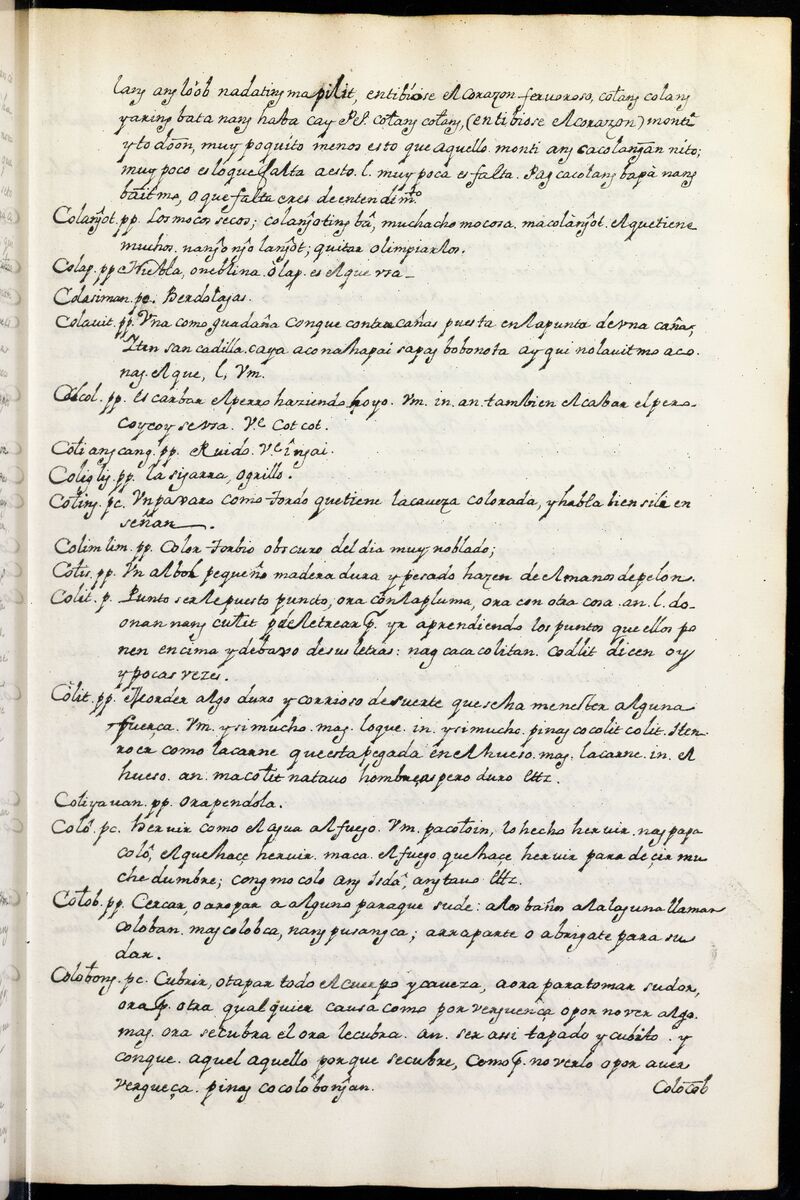 lang ang loob nadating mapilit, entibiose el corazon fervoroso, colang colang
yaring bata nang hasta cay P.S. colang colang, (entibiose el corazon) monti
y to doon, muy poquito menos esto que aquello. monti ang cacolangan nito;
muy poco es lo que falta a esto. l. muy poca es falta. Pag cacolang bapa nang
bait mo, o que falta eres de entendimto
Colangot. pp. los mocos secos; colangoting ba, muchacho mocoso. macolangot. el que tiene
muchos. nango ngo langot; quitar o limpiarlos.
Colap. pp Niebla, o neblina. Olap. es el que vsa _
Colasiman. pc. Berdolajas.
Colauit. pp. Vna como guadaña con que contra cañas puesta en la punto de vna caña;
Iten san cadilla. caya aco nahapai sapag bobonota ay qui nolauit mo aco.
nag. El que, l, Vm.
Colcol. pp. escarbar el perro haziendo hoyo. Vm. in. an. tambien el cabar el perro
coycoy se vsa. Ve. Cotcot.
Coliangcang. pp. Ruido. Ve. Ingai.
Coliglig. pp. la sigarra, o grillo.
Coling. pc. Vn pavaro como tordo que tiene la caveza colorada, y habla bien si le en
señan.
Colimlim. pp. Color turbio obscuro del dia muy noblado;
Colis. pp. Vn albol pequeño madera dura y pesado hazen de el manos de pelon.
Colit. p. Punto ser le puesto puncto, ora con la pluma, ora con otra cosa. an. l. do-
onan nang culit p. deletrear p. yr aprendiendo los puntos que ellos po
nen encima y debaxo de sus letras: nag caca colitan. Codlit dicen oy
y pocas vezes.
Colit. pp. Morder algo duro y corrioso de suerte que se ha menester alguna
fuerca. Vm. y si mucho. mag. lo que. in. y si mucho. pinag cocolit colit. Iten
roer como la carne que esta pegada en el hueso. mag. la carne. in. el
hueso. an. macolit na tauo hombre aspero duro Etz.
Coliyauan. pp. Orapendola.
Colo. pc. Hervir como el agua al fuego. Vm. pacoloin, lo hecho hervir. nag papa
colo, el que haçe hervir. maca. el fuego que haçe hervir para deçir mu
che dumbre; cong mo colo ang Isda, ang tauo Etz.
Colob. pp. Cercar, o aropar a alguno para que sude: a los baños a la laguna llaman
coloban. mag colob ca, nang pusang ca; arraparte o abrigate para su
dar.
Colobong. pc. Cubrir, o tapar todo el cuerpo y caveza, aora para tomar sudor,
ora p. otra qualquier causa como por verguença o por no ver algo.
mag. ora se cubra el ora le cubra. an. ser assi tapado y cubirto. y
conque. aquel aquello porque se cubre, como p. no verlo o por aver
vergueça. pinag cocolobongan. Colocob